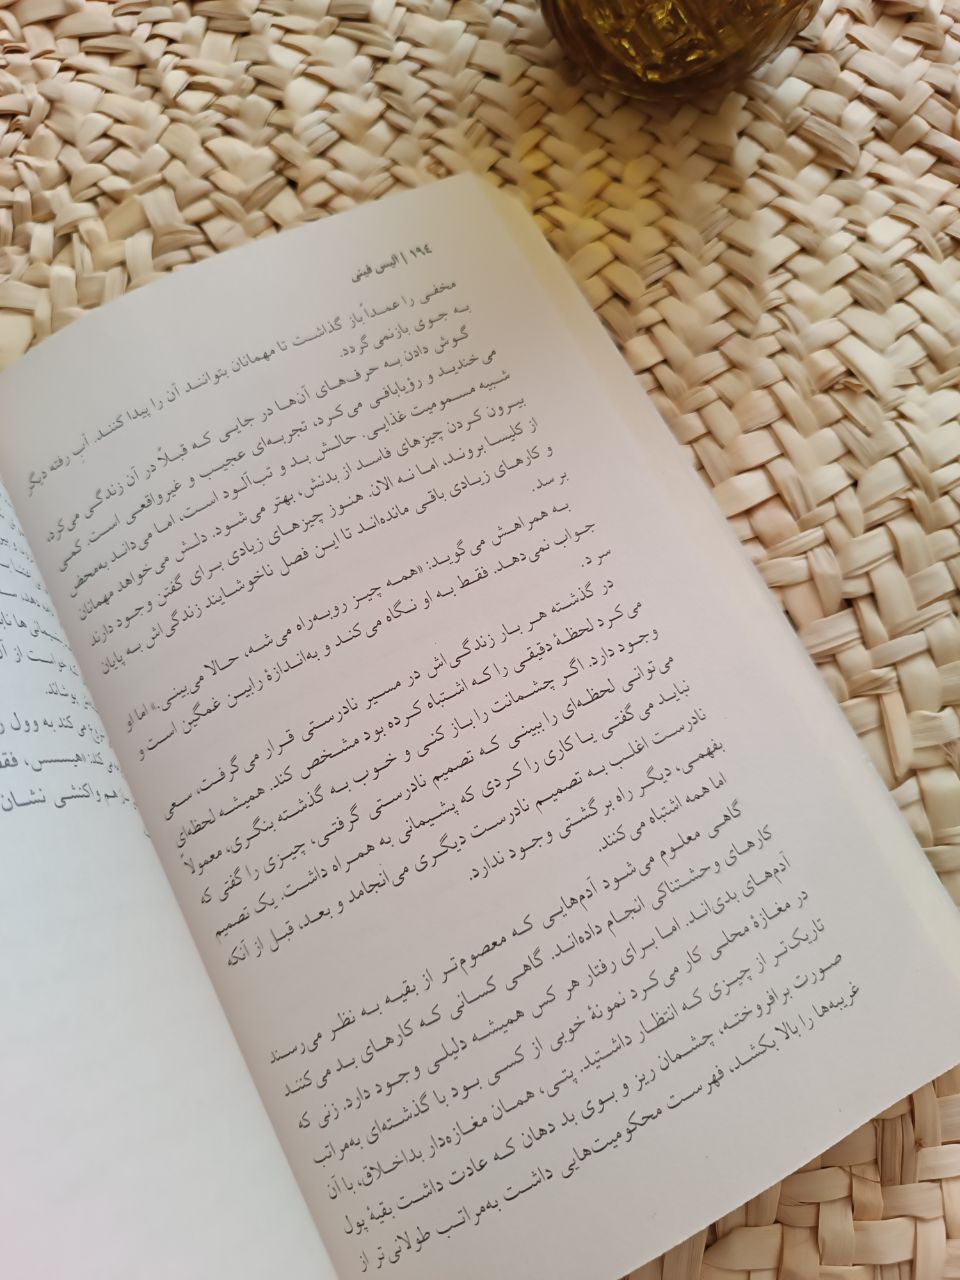 ۱۹٤ | الیس فینی
مخفی را عمداً باز گذاشت تا مهمانان بتوانند آن را پیدا کنند. آبِ رفته دیگر
به جوی بازنمی گردد.
گوش دادن به حرف‌های آن‌ها در جایی که قبلاً در آن زندگی می‌کرد،
می‌خندید و رؤیابافی می‌کرد، تجربه‌ای عجیب و غیرواقعی است. کمی
شبیه مسمومیت غذایی. حالش بد و تب‌آلود است، اما می‌داند به‌محض
بیرون کردن چیزهای فاسد از بدنش، بهتر می‌شود. دلش می‌خواهد مهمانان
از کلیسا بروند، اما نه الان. هنوز چیزهای زیادی برای گفتن وجود دارند
و کارهای زیادی باقی مانده‌اند تا این فصل ناخوشایند زندگی‌اش به پایان
برسد.
به همراهش می‌گوید: «همه چیز روبه‌راه می‌شه، حالا می‌بینی.» اما او
جواب نمی‌دهد. فقط به او نگاه می‌کند و به‌اندازهٔ رابین غمگین است و
سرد.
در گذشته هر بار زندگی‌اش در مسیر نادرستی قرار می‌گرفت، سعی
می‌کرد لحظهٔ دقیقی را که اشتباه کرده بود مشخص کند. همیشه لحظه‌ای
وجود دارد. اگر چشمانت را باز کنی و خوب به گذشته بنگری، معمولاً
می‌توانی لحظه‌ای را ببینی که تصمیم نادرستی گرفتی، چیزی را گفتی که
نباید می‌گفتی یا کاری را کردی که پشیمانی به همراه داشت. یک تصمیم
نادرست اغلب به تصمیم نادرست دیگری می‌انجامد و بعد، قبل از آنکه
بفهمی، دیگر راه برگشتی وجود ندارد.
اما همه اشتباه می‌کنند.
گاهی معلوم می‌شود آدم‌هایی که معصوم‌تر از بقیه به نظر می‌رسند
کارهای وحشتناکی انجام داده‌اند. گاهی کسانی که کارهای بد می‌کنند
آدم‌های بدی‌اند. اما برای رفتار هر کس همیشه دلیلی وجود دارد. زنی که
در مغازهٔ محلی کار می‌کرد نمونهٔ خوبی از کسی بود با گذشته‌ای به‌مراتب
تاریک‌تر از چیزی که انتظار داشتید. پتی، همان مغازه‌دار بداخلاق، با آن
صورت برافروخته، چشمان ریز و بوی بد دهان که عادت داشت بقیهٔ پول
غریبه‌ها را بالا بکشد، فهرست محکومیت‌هایی داشت به‌مراتب طولانی‌تر از